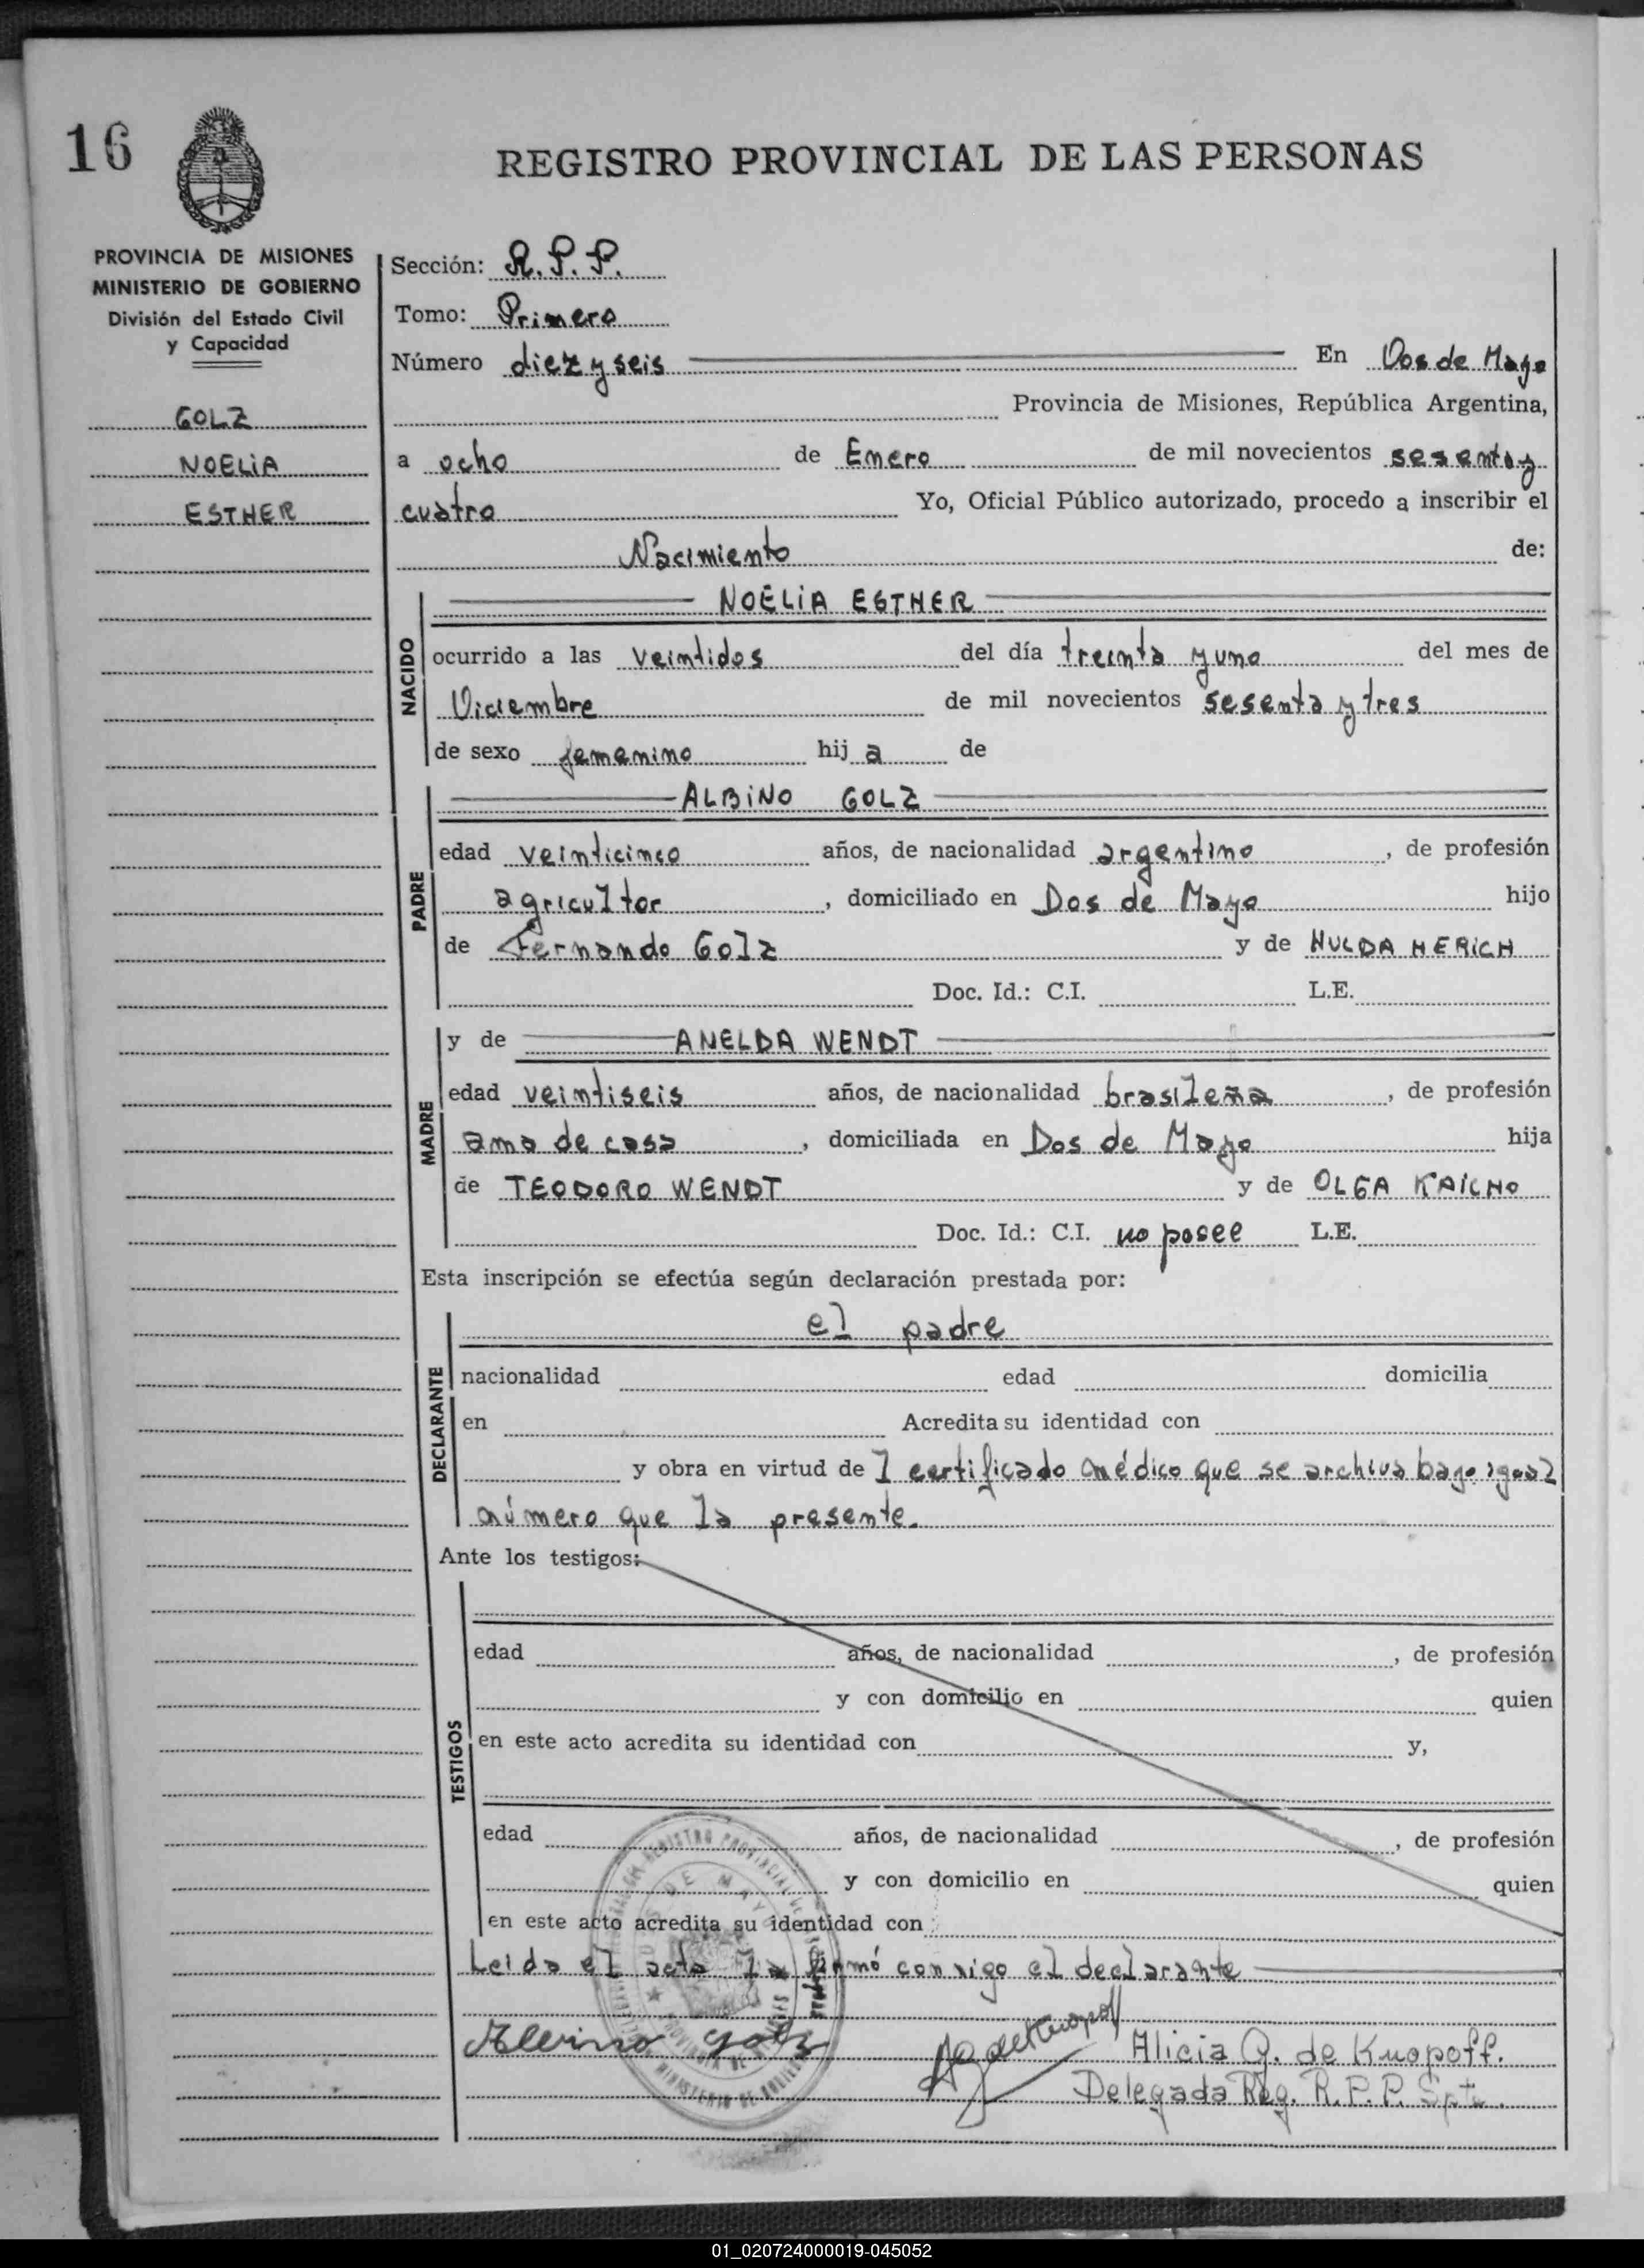 16
REGISTRO PROVINCIAL DE LAS PERSONAS
PROVINCIA DE MISIONES
MINISTERIO DE GOBIERNO
División del Estado Civil
y Capacidad
GOLZ
NOELIA
ESTHER
Sección: R.P.P.
Tomo: Primero
Número diez y seis En Dos de Mayo
Provincia de Misiones, República Argentina,
a ocho de Enero de mil novecientos sesenta y
cuatro Yo, Oficial Público autorizado, procedo a inscribir el
Nacimiento de:
NACIDO
NOELIA ESTHER
ocurrido a las veintidos del día treinta y uno del mes de
Diciembre de mil novecientos sesenta y tres
de sexo femenino hij a de
PADRE
ALBINO GOLZ
edad veinticinco años, de nacionalidad argentino, de profesión
agricultor, domiciliado en Dos de Mayo hijo
de Fernando Golz y de HULDA HERICH
Doc. Id.: C.I. L.E.
MADRE
y de ANELDA WENDT
edad veintiseis años, de nacionalidad brasileña, de profesión
ama de casa, domiciliada en Dos de Mayo hija
de TEODORO WENDT y de OLGA KAICHO
Doc. Id.: C.I. no posee L.E.
Esta inscripción se efectúa según declaración prestada por:
DECLARANTE
el padre
nacionalidad edad domicilia
en Acredita su identidad con
y obra en virtud de l certificado médico que se archiva bajo igual
número que la presente.
Ante los testigos:
TESTIGOS
edad años, de nacionalidad , de profesión
y con domicilio en quien
en este acto acredita su identidad con y,
edad años, de nacionalidad , de profesión
y con domicilio en quien
en este acto acredita su identidad con
Leida el acta la firmó conmigo el declarante
Albino Golz
Alicia G. de Knopoff.
Delegada Reg. R.P.P. Spte.
01_020724000019-045052